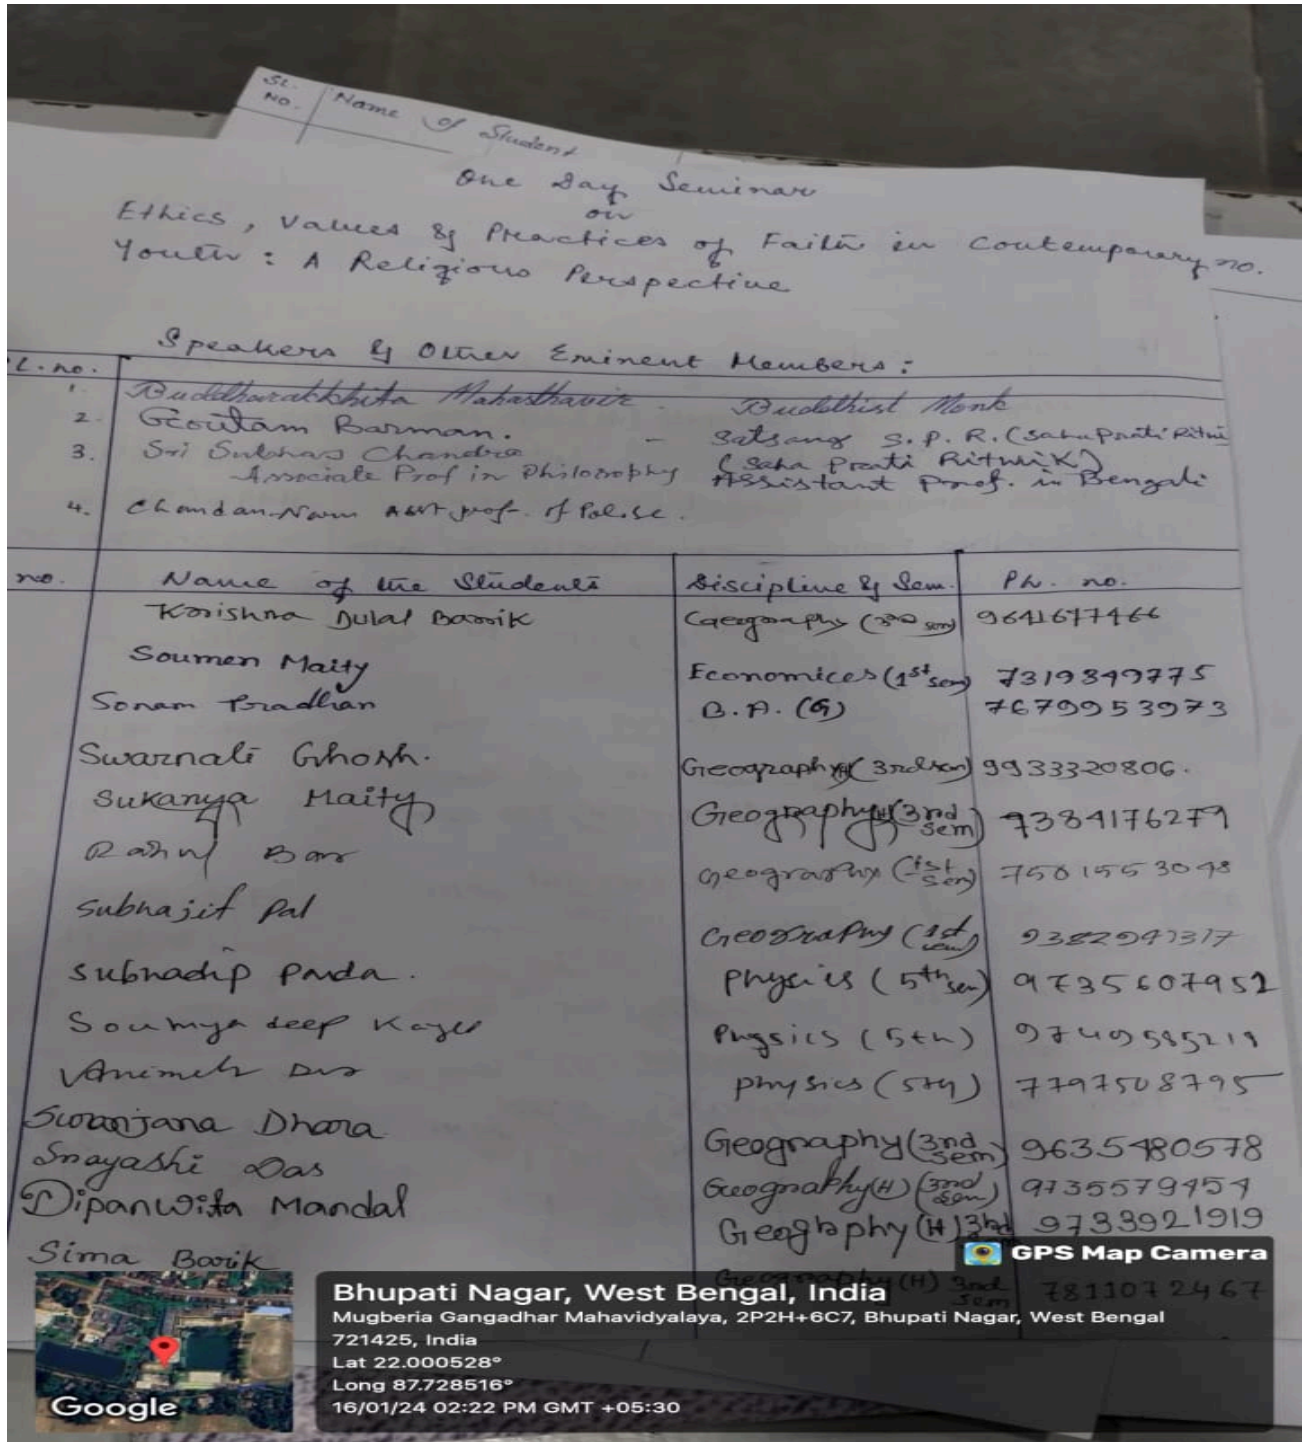 SL. NO. Name of Student
One Day Seminar
on
Ethics, Values & Practices of Faith in Contemporary
no.
Youth : A Religious Perspective
Speakers & Other Eminent Members :
L. no.
1. Buddharakkhita Mahasthavir. Buddhist Monk
2. Goutam Barman. - Satsang S.P.R. (Saha Prati Ritwi
(Saha Prati Ritwik)
3. Sri Subhas Chandra
Associate Prof in Philosophy Assistant Prof. in Bengali
4. Chandan Asst prof. of Pol.sc.
no. Name of the Students Discipline & Sem. Ph. no.
Krishna Dulal Barik Geography (3rd sem) 9641677466
Soumen Maity Economices (1st sem) 7319849775
Sonam Pradhan B.A. (G) 7679953973
Swarnali Ghosh. Geography (H) (3rd sem) 9933320806.
Sukanya Maity Geography (H) (3nd sem) 7384176279
Rahul Bar Geography (1st sem)
Subhajit Pal Geography (1st sem)
Subhadip Panda. Physics (5th sem) 9735607952
Soumya deep Physics (5th)
Animesh Das Physics (5th) 7797508795
Suranjana Dhara Geography (3nd sem) 9635480578
Snayashi Das Geography (H) (3nd sem) 9735579454
Dipanwita Mandal Geography (H) 3nd 9733921919
Sima Barik Geography (H) 3nd sem 7811072467
GPS Map Camera
Bhupati Nagar, West Bengal, India
Mugberia Gangadhar Mahavidyalaya, 2P2H+6C7, Bhupati Nagar, West Bengal
721425, India
Lat 22.000528°
Long 87.728516°
16/01/24 02:22 PM GMT +05:30
Google